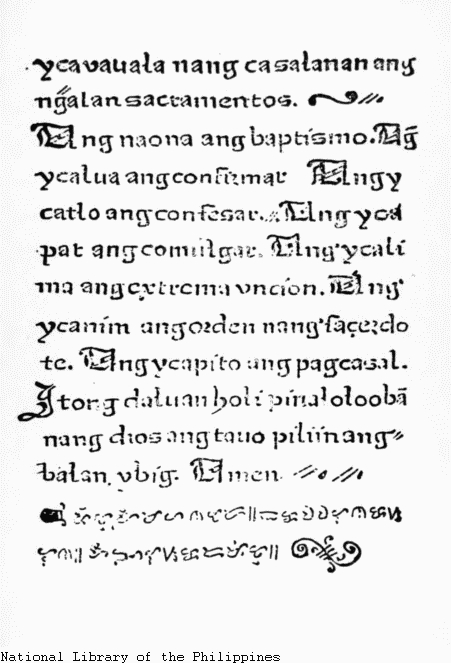 ycavauala nang casalanan ang
ng̃alan sacramentos.
Ang naona ang baptismo. Ag̃
ycalua ang confirmar Ang y
catlo ang confesar. Ang yca
pat ang comulgar. Ang ycali
ma ang extrema vncion. Ang
ycanim ang orden nang saçerdo
te. Ang ycapito ang pagcasal.
Itong daluan holi pinaloloobā
nang dios ang tauo piliin ang
balan, ybig. Amen
National Library of the Philippines